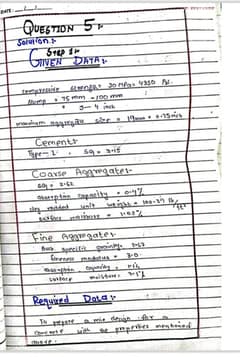 DATE: __/__/__
QUESTION 5:-
Solution:-
STEP 1:-
GIVEN DATA:-
compressive strength = 30 MPa = 4350 Psi.
Slump = 75 mm - 100 mm
= 3 - 4 inch
maximum aggregate size = 19mm = 0.75 inch
Cement:-
Type-I , SG = 3.15
Coarse Aggregate:-
SG = 2.62
absorption capacity = 0.4%
dry rodded unit weight =
surface moisture =
Fine Aggregate:-
Bulk specific gravity =
fineness modulus =
absorption capacity =
surface moisture =
Required Data:-
To prepare a mix design for a
concrete with the properties mentioned
above.